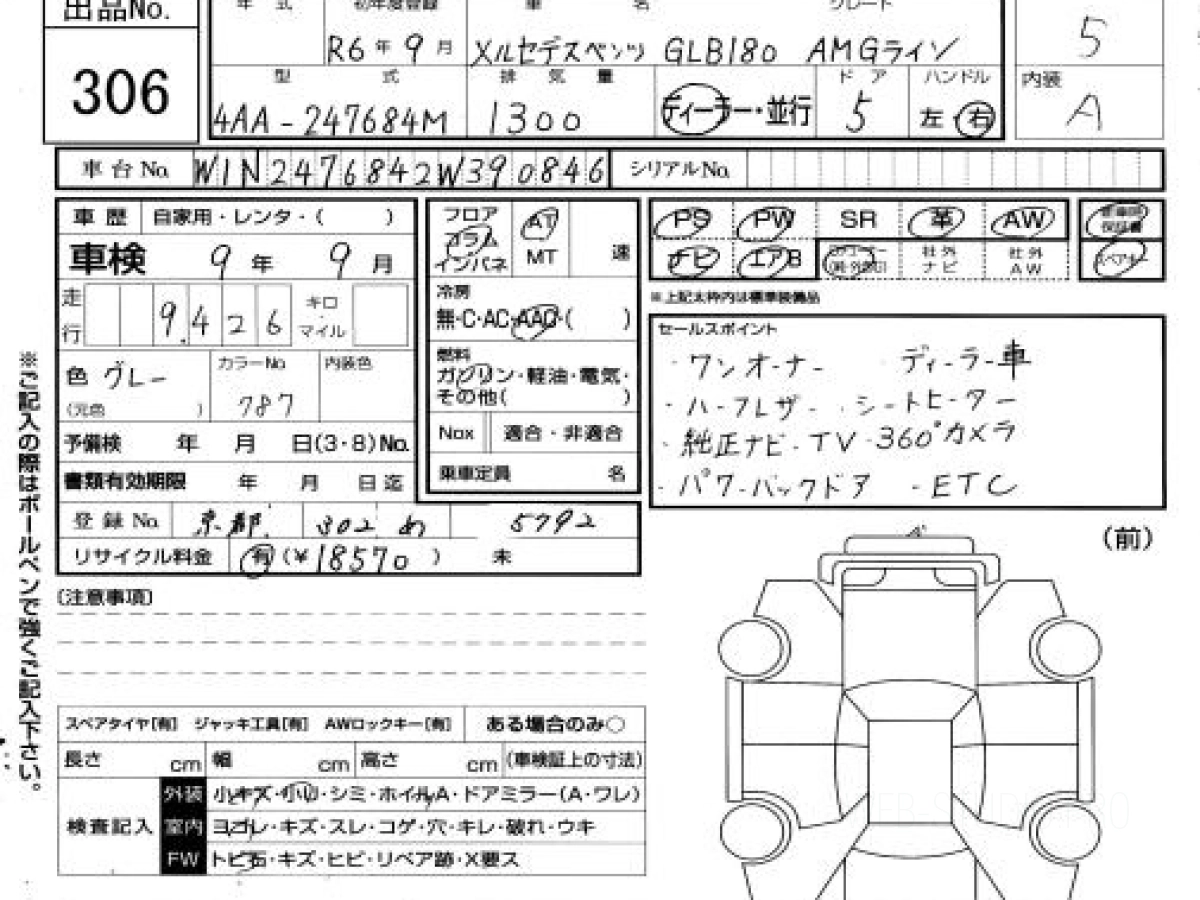 出品No.
306
年 式
初年度登録
車 名
グレード
R6年9月
メルセデスベンツ GLB180 AMGライン
5
型 式
排 気 量
ディーラー・並行
ド ア
ハンドル
内装
4AA-247684M
1300
5
左・右
A
車台No. W1N2476842W390846
シリアルNo.
車 歴 自家用・レンタ・( )
車検 9年 9月
走行 9.426 キロ マイル
色 グレー
(元色 )
カラーNo 787
内装色
予備検 年 月 日(3・8)No.
書類有効期限 年 月 日迄
登録No. 京都 302 め 5792
リサイクル料金 有(¥18570 ) 未
フロア
コラム
インパネ
AT
MT
速
冷房
無・C・AC・AAC・( )
燃料
ガソリン・軽油・電気・
その他( )
Nox 適合・非適合
乗車定員 名
PS PW SR 革 AW
ナビ エアB 社外ナビ 社外AW
保証書
スペアキー
※上記太枠内は標準装備品
セールスポイント
・ワンオーナー ・ディーラー車
・ハーフレザー ・シートヒーター
・純正ナビ・TV・360°カメラ
・パワーバックドア ・ETC
※ご記入の際はボールペンで強くご記入下さい。
(注意事項)
(前)
スペアタイヤ[有] ジャッキ工具[有] AWロックキー[有] ある場合のみ○
長さ cm 幅 cm 高さ cm (車検証上の寸法)
検査記入
外装 小キズ・小凹・シミ・ホイルA・ドアミラー(A・ワレ)
室内 ヨゴレ・キズ・スレ・コゲ・穴・キレ・破れ・ウキ
FW トビ石・キズ・ヒビ・リペア跡・X要ス